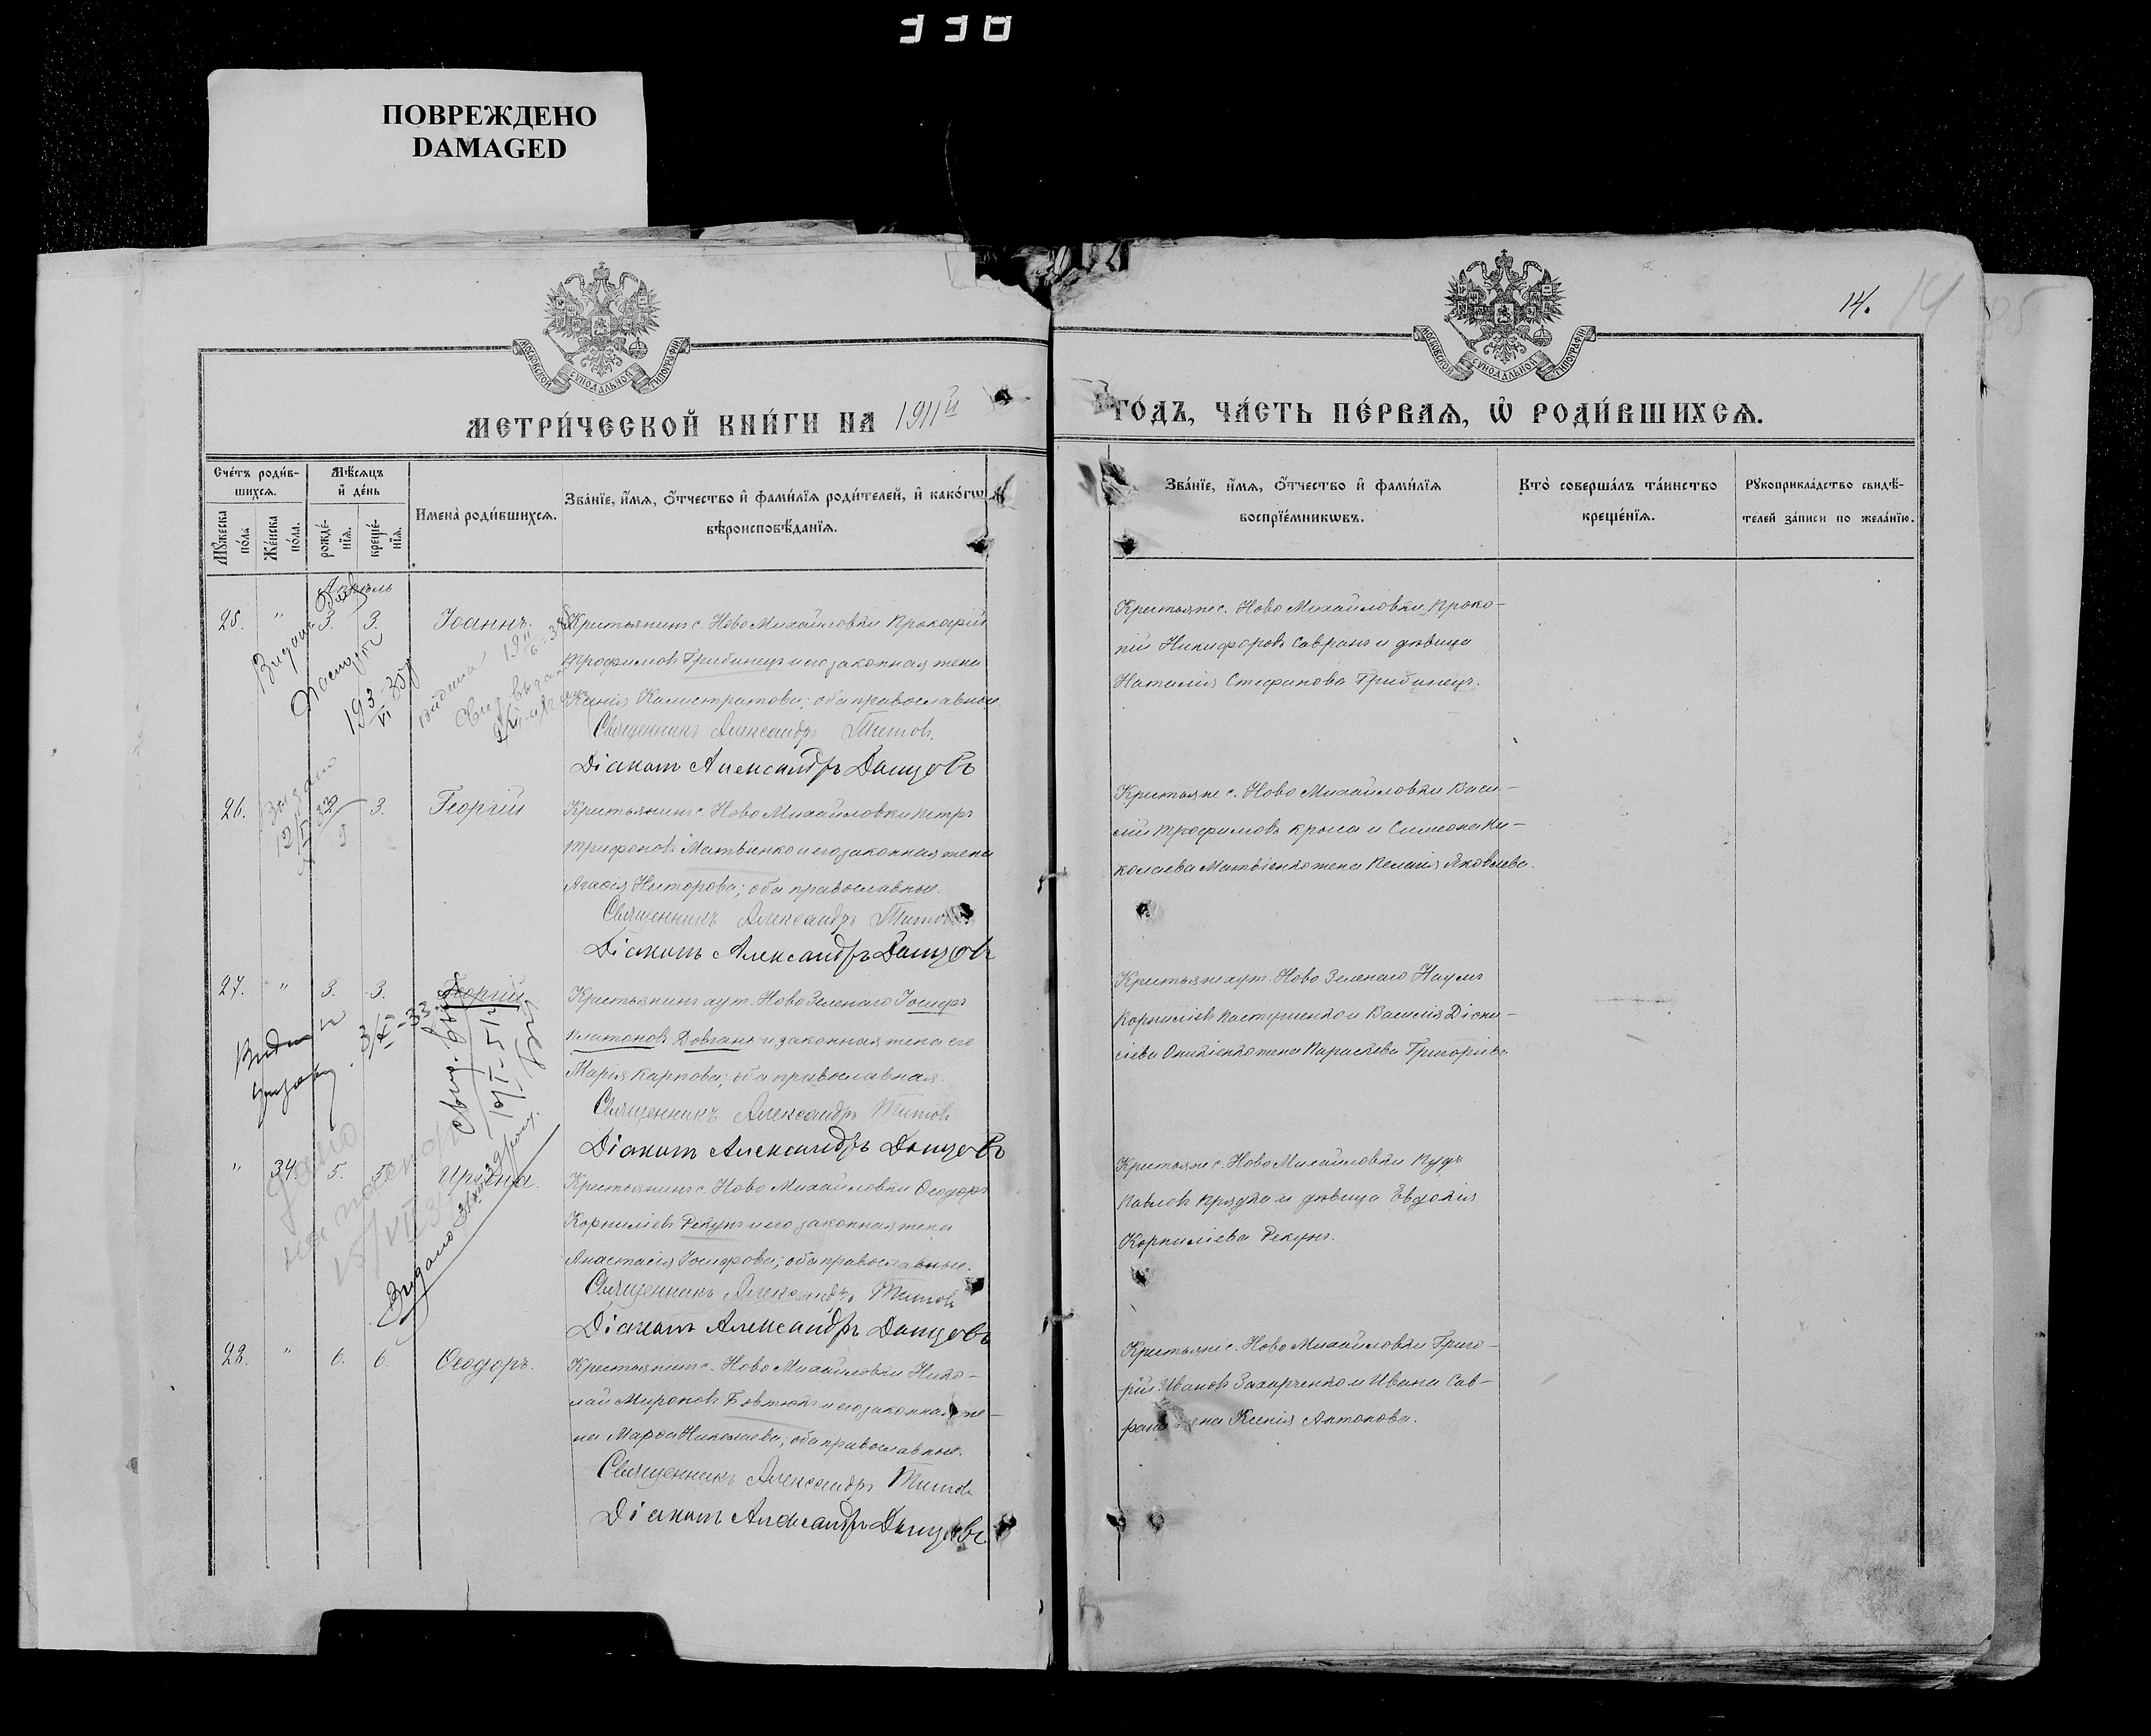 330
ПОВРЕЖДЕНО
DAMAGED
14.
14
МОСКОВСКОЙ СУНОДАЛЬНОЙ ТИПОГРАФІИ
МОСКОВСКОЙ СУНОДАЛЬНОЙ ТИПОГРАФІИ
МЕТРИ́ЧЕСКОЙ КНИ́ГИ НА 1911й
ГО́ДЪ, ЧА́СТЬ ПЕ́РВАѦ, Ѡ҆ РОДИ́ВШИХСѦ.
Сче́тъ роди́в-
шихсѧ.
Мѣ́сѧцъ
и҆ де́нь
Мꙋ́жеска
по́ла
Же́нска
по́ла.
рожде́-
нїѧ.
креще́-
нїѧ.
Имена̀ роди́вшихсѧ.
Зва́нїе, и҆́мѧ, ѻ҆́тчество и҆ фами́лїѧ роди́телей, и҆ како́гѡ
вѣроисповѣ́данїѧ.
Зва́нїе, и҆́мѧ, ѻ҆́тчество и҆ фами́лїѧ
воспрїе́мникѡвъ.
Кто̀ соверша́лъ та́инство
креще́нїѧ.
Рꙋкоприкла́дство свидѣ́-
телей за́писи по жела́нїю.
Апрѣль
25. " 3. 3. Іоаннъ.
Крестьянинъ с. Ново Михайловки Прокофій
Трофимовъ Грибинецъ и его законная жена
Ксенія Калистратова; оба православные.
Священникъ Александръ Титовъ.
Діаконъ Александръ Донцовъ
Крестьяне с. Ново Михайловки Проко-
пій Никифоровъ Савранъ и дѣвица
Наталія Стефанова Грибинецъ.
26. 3. Георгій
Крестьянинъ с. Ново Михайловки Петръ
Трифоновъ Матвѣенко и его законная жена
Агафія Несторова; оба православные.
Священникъ Александръ Титовъ.
Діаконъ Александръ Донцовъ
Крестьяне с. Ново Михайловки Васи-
лій Трофимовъ Крыса и Симеона Ни-
колаева Матвіенко жена Пелагія Яковлева.
27. " 3. 3. Георгій
Крестьянинъ хут. Ново Зеленаго Іосифъ
Платоновъ Довгань и законная жена его
Марія Карпова; оба православная.
Священникъ Александръ Титовъ
Діаконъ Александръ Донцовъ
Крестьяне хут. Ново Зеленаго Наумъ
Корниліевъ Пастушенко и Василія Діони-
сіева жена Параскева Григоріева
" 34. 5. 5. Ирина.
Крестьянинъ с. Ново Михайловки Ѳеодоръ
Корниліевъ Рекунъ и его законная жена
Анастасія Іосифова; оба православные.
Священникъ Александръ Титовъ
Діаконъ Александръ Донцовъ
Крестьяне с. Ново Михайловки
Павловъ Прядка и дѣвица Евдокія
Корниліева Рекунъ.
28. " 6. 6. Ѳеодоръ.
Крестьянинъ с. Ново Михайловки Нико-
лай Мироновъ Бовтюкъ и его законная же-
на Марѳа Николаева; оба православные.
Священникъ Александръ Титовъ
Діаконъ Александръ Донцовъ
Крестьяне с. Ново Михайловки Григо-
рій Ивановъ Захарченко и Ивана Сав-
рана жена Ксенія Антонова.